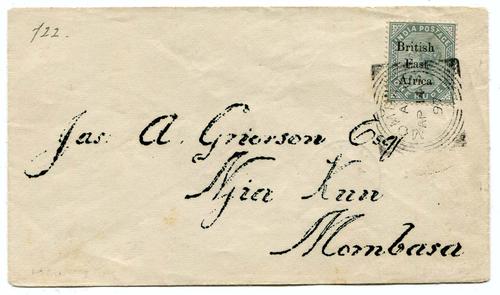 122.
INDIA POSTAGE
British
East
Africa
AP
97
Jas. A. Grierson Esq
Njia Kuu
Mombasa